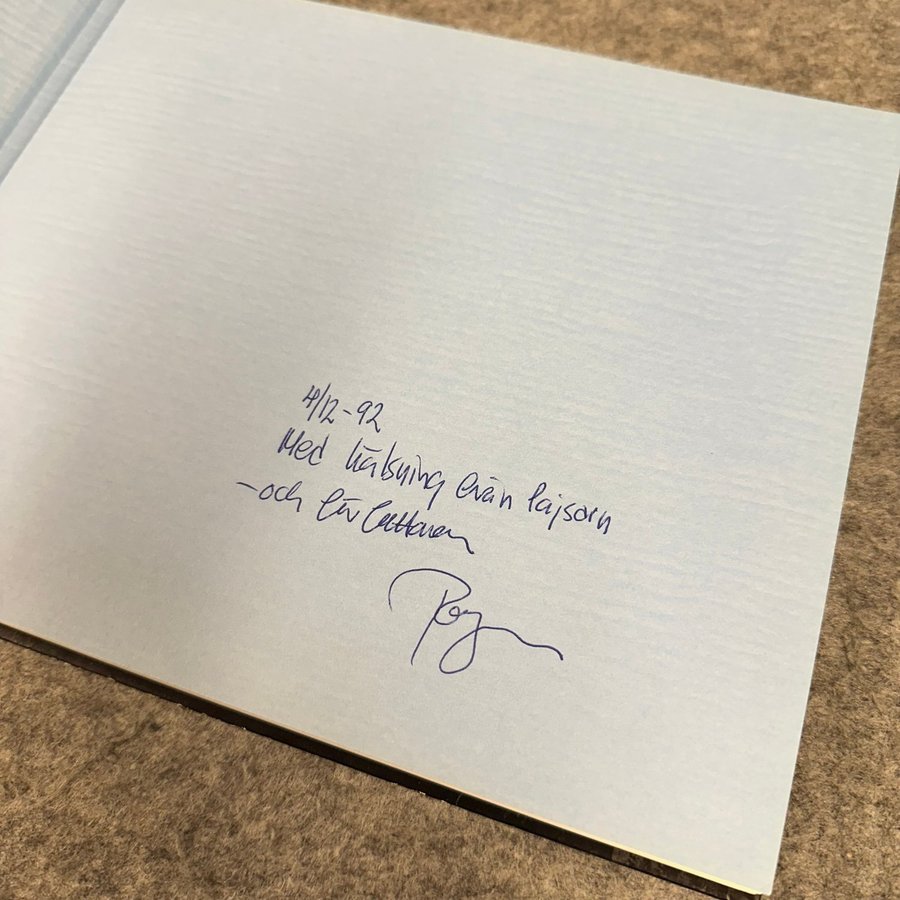 4/12-92
Med hälsning från Pajsarn
-och författaren